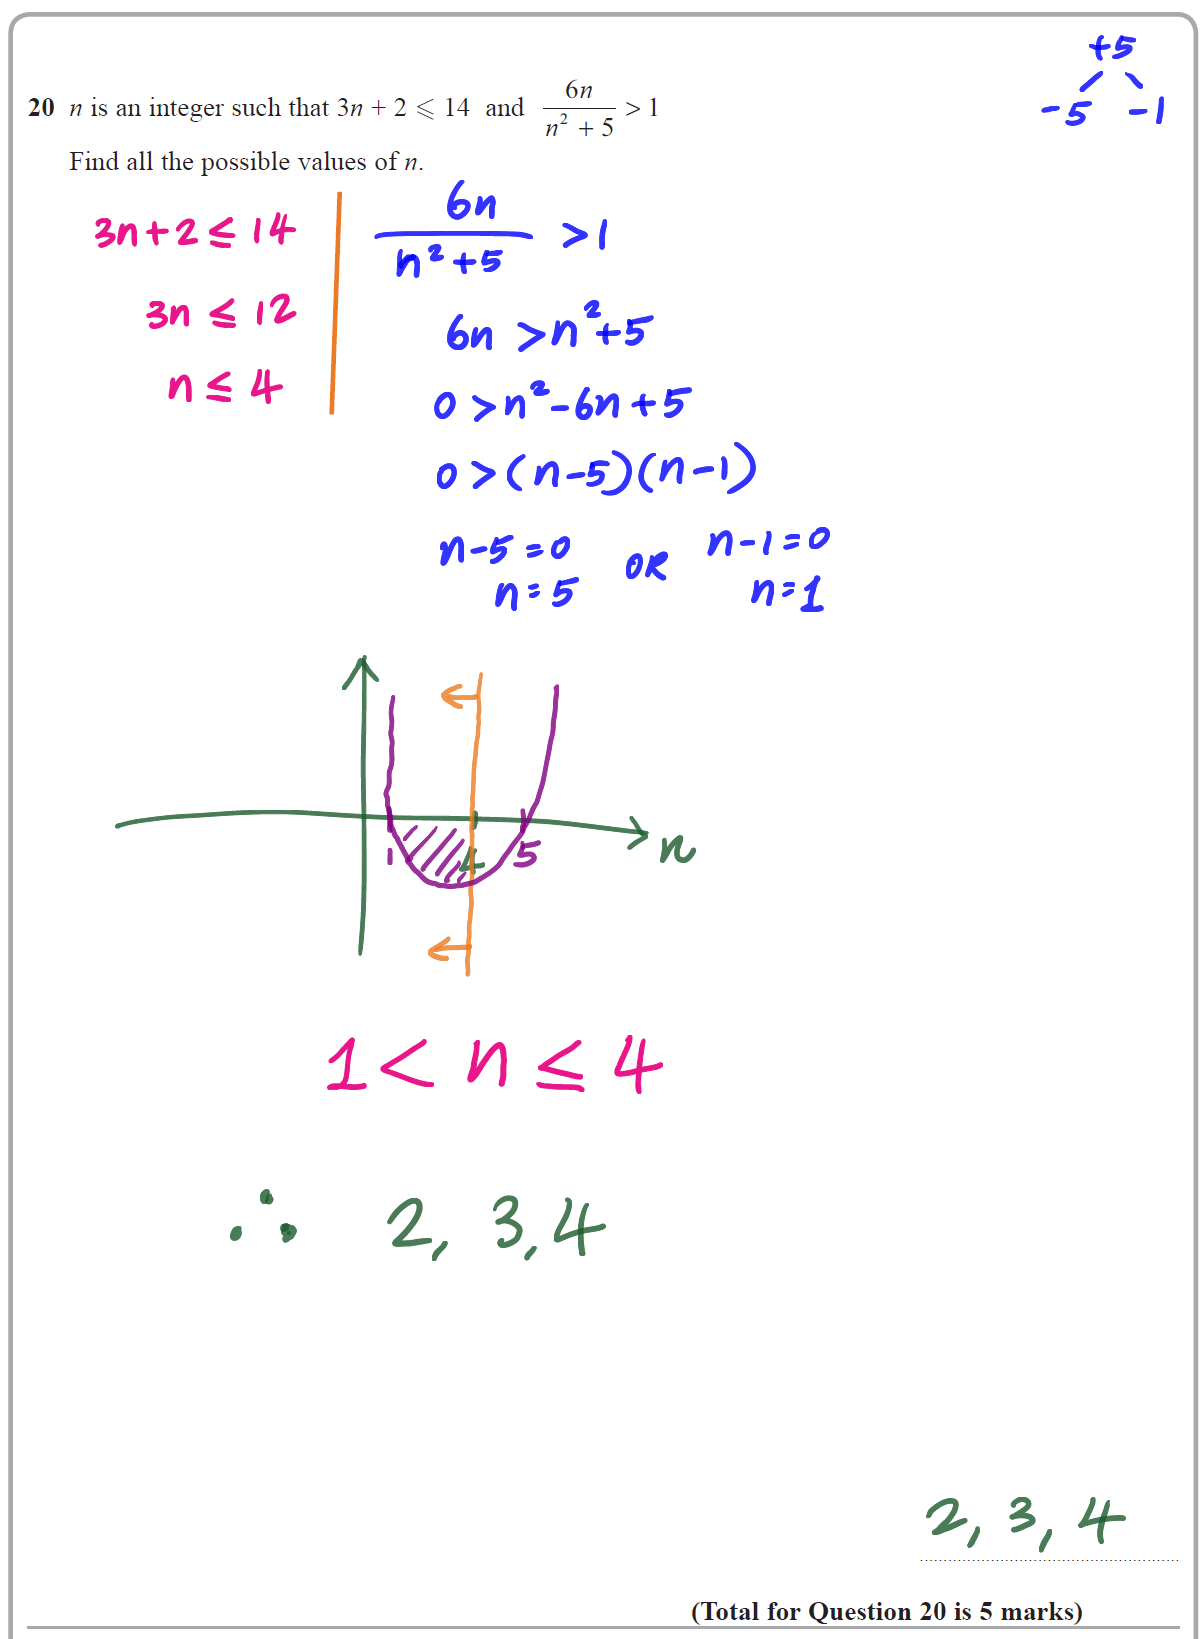 +5
-5 -1
20 n is an integer such that 3n + 2 ⩽ 14 and 6n/(n² + 5) > 1
Find all the possible values of n.
3n+2 ≤ 14
3n ≤ 12
n ≤ 4
6n/(n²+5) > 1
6n > n²+5
0 > n²-6n+5
0 > (n-5)(n-1)
n-5=0 OR n-1=0
n=5 n=1
1 4 5 n
1 < n ≤ 4
∴ 2, 3, 4
2, 3, 4
(Total for Question 20 is 5 marks)